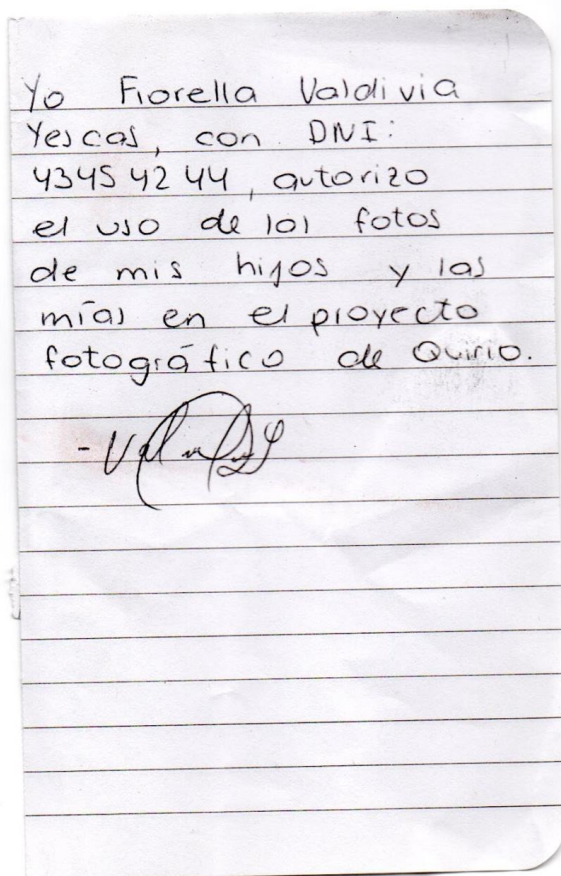 Yo Fiorella Valdivia
Yescas, con DNI:
43454244, autorizo
el uso de las fotos
de mis hijos y las
mías en el proyecto
fotográfico de Quirio.